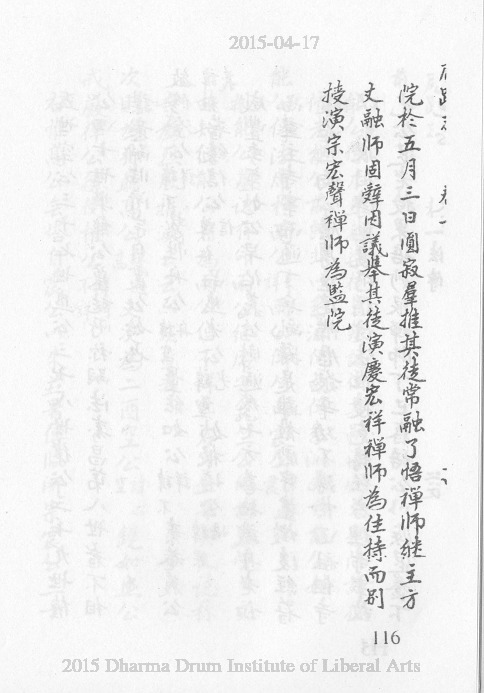 2015-04-17
院於五月三日圓寂羣推其徒常融了悟禪師繼主方
丈融師固辭因議舉其徒演慶宏祥禪師為住持而別
授演宗宏聲禪師為監院
116
2015 Dharma Drum Institute of Liberal Arts